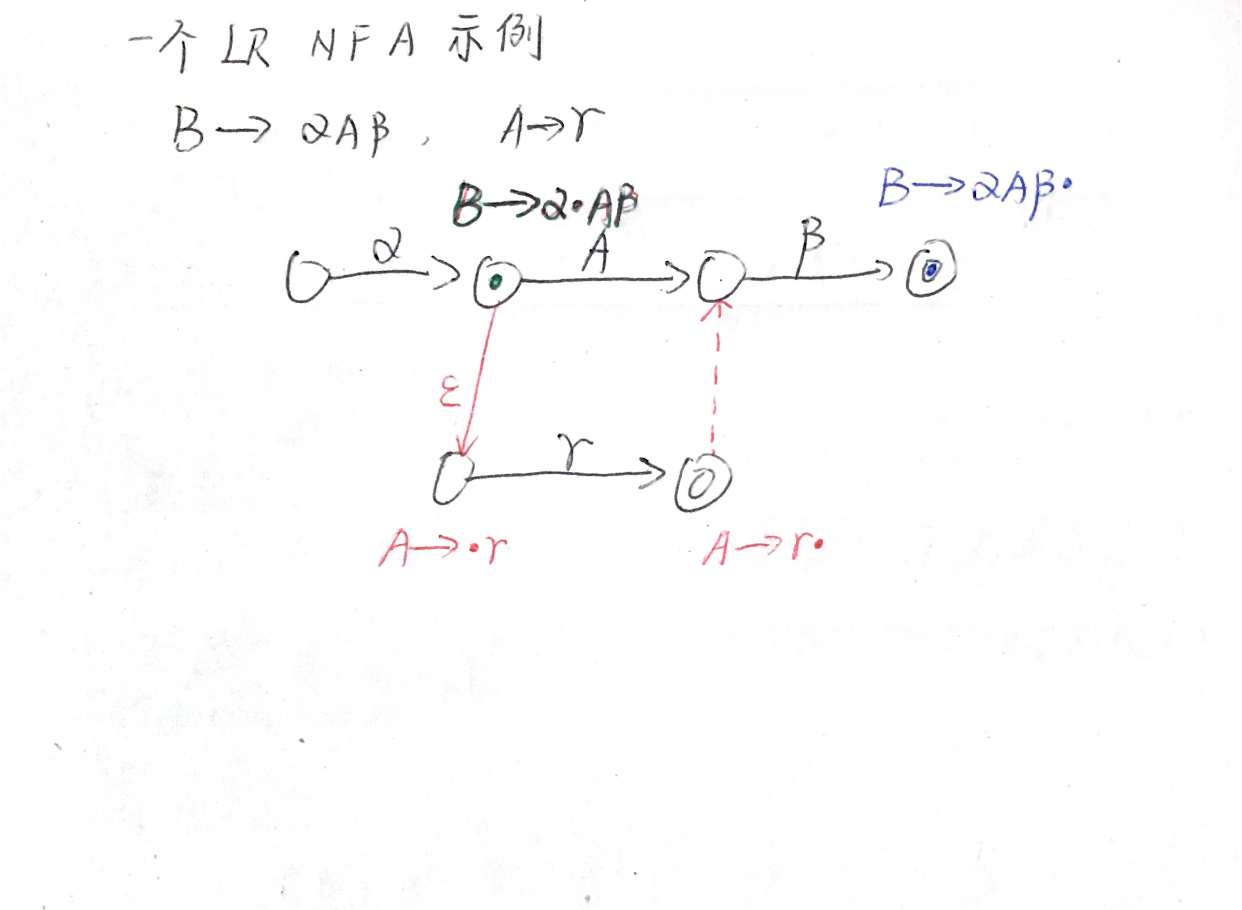 一个 LR NFA 示例
B → αAβ, A → γ
B → α·Aβ
B → αAβ·
α
A
β
ε
γ
A → ·γ
A → γ·